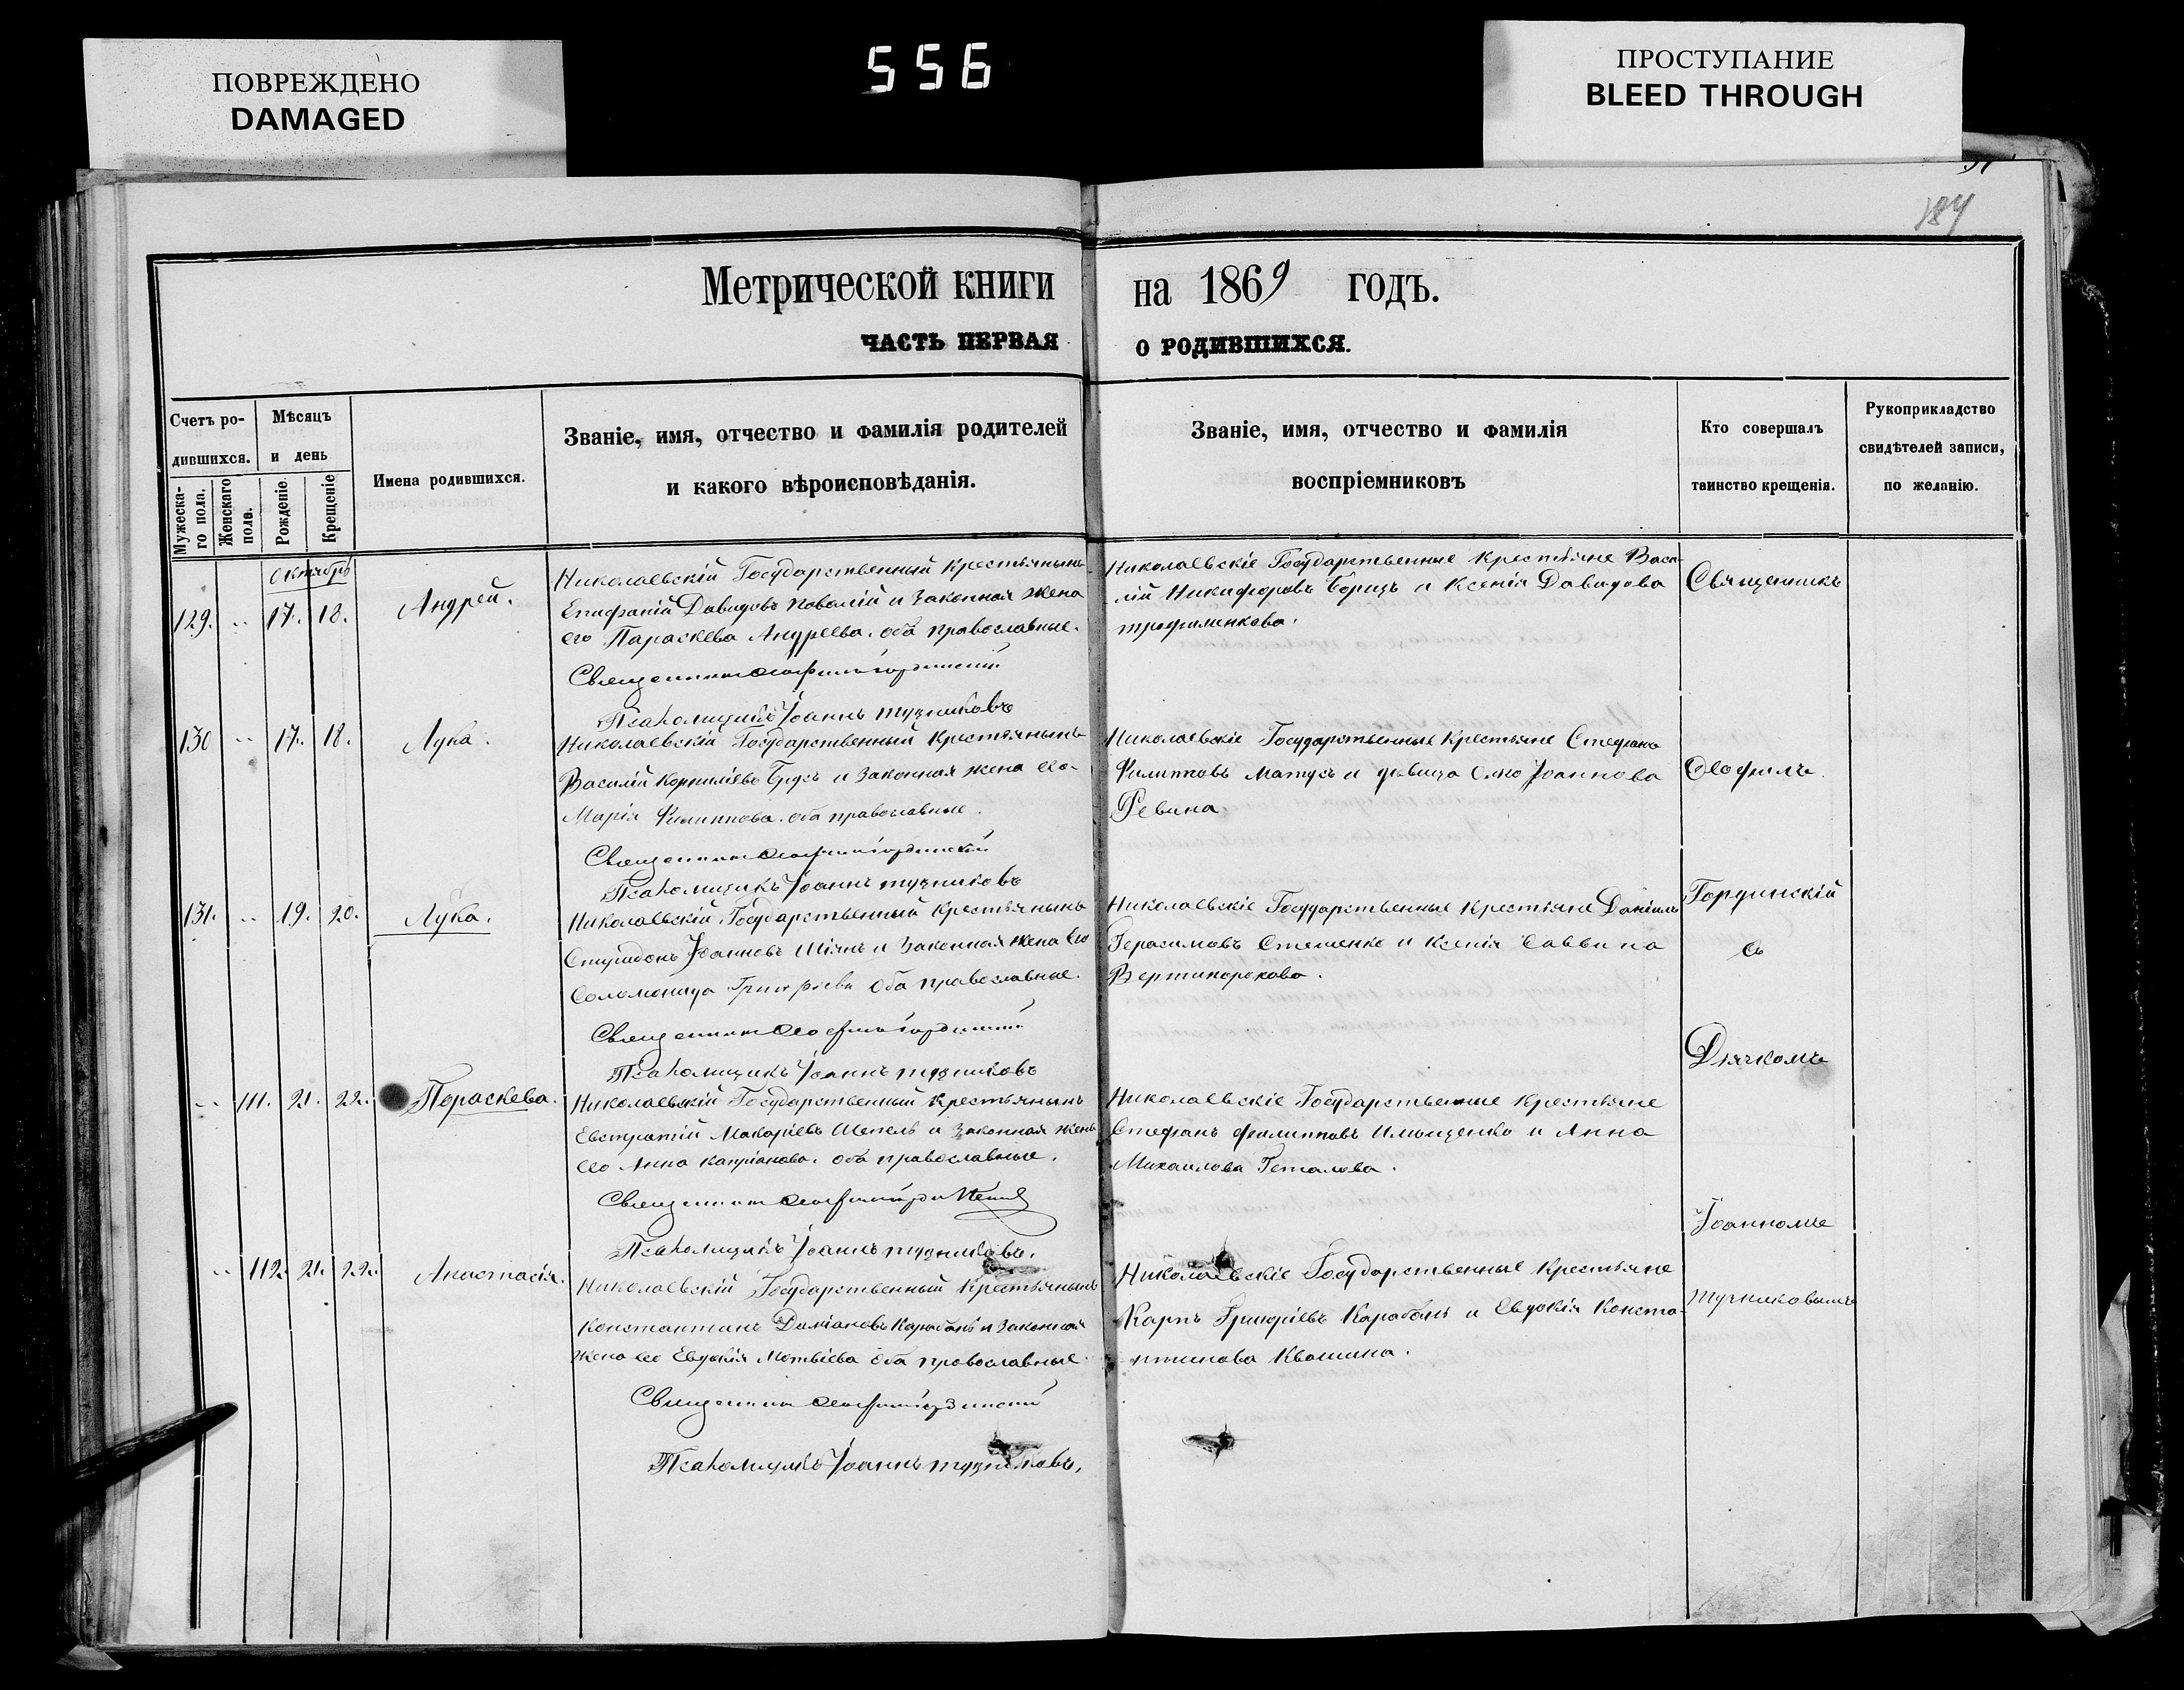 ПОВРЕЖДЕНО
DAMAGED
556
ПРОСТУПАНИЕ
BLEED THROUGH
184
Метрической книги на 1869 годъ.
ЧАСТЬ ПЕРВАЯ О РОДИВШИХСЯ.
Счетъ ро-
дившихся.
Мужеска-
го пола.
Женскаго
пола.
Мѣсяцъ
и день
Рожденіе.
Крещеніе
Имена родившихся.
Званіе, имя, отчество и фамилія родителей
и какого вѣроисповѣданія.
Званіе, имя, отчество и фамилія
воспріемниковъ
Кто совершалъ
таинство крещенія.
Рукоприкладство
свидѣтелей записи,
по желанію.
Октября
129. 17. 18. Андрей.
Николаевскій Государственный Крестьянинъ
Епифаній Давидовъ и законная жена
его Параскева Андреева. оба православные.
Священникъ Ѳеофилъ Гординскій
Псаломщикъ Іоаннъ
Николаевскіе Государственные Крестьяне Васи-
лій Никифоровъ Борицъ и Ксенія Давидова
трофименкова.
130 17. 18. Лука.
Николаевскій Государственный Крестьянинъ
Василій Корниліевъ Брусъ и законная жена его
Марія Филиппова. оба православные.
Священникъ Ѳеофилъ Гординскій
Псаломщикъ Іоаннъ
Николаевскіе Государственные Крестьяне Стефанъ
Филипповъ Матусъ и дѣвица Іоаннова
Ревина
131. 19. 20. Лука.
Николаевскій Государственный Крестьянинъ
Спиридонъ Іоанновъ и законная жена его
Соломонида Григоріева оба православные.
Священникъ Ѳеофилъ Гординскій
Псаломщикъ Іоаннъ
Николаевскіе Государственные Крестьяне Даніилъ
Герасимовъ Стеменко и Ксенія Саввина
111. 21. 22. Параскева.
Николаевскій Государственный Крестьянинъ
Евстратій Макаріевъ Шепель и законная жена
его Анна оба православные.
Священникъ Ѳеофилъ Гординскій
Псаломщикъ Іоаннъ
Николаевскіе Государственные Крестьяне
Стефанъ Филипповъ и Анна
Михаилова
112. 21. 22. Анастасія.
Николаевскій Государственный Крестьянинъ
Константинъ Даміановъ Карабанъ и законная
жена его Евдокія Матвіева оба православные.
Священникъ Ѳеофилъ Гординскій
Псаломщикъ Іоаннъ
Николаевскіе Государственные Крестьяне
Карпъ Григоріевъ Карабанъ и Евдокія Конста-
нтинова Квашина.
Священникъ
Ѳеофилъ
Гординскій
съ
Дьячкомъ
Іоанномъ